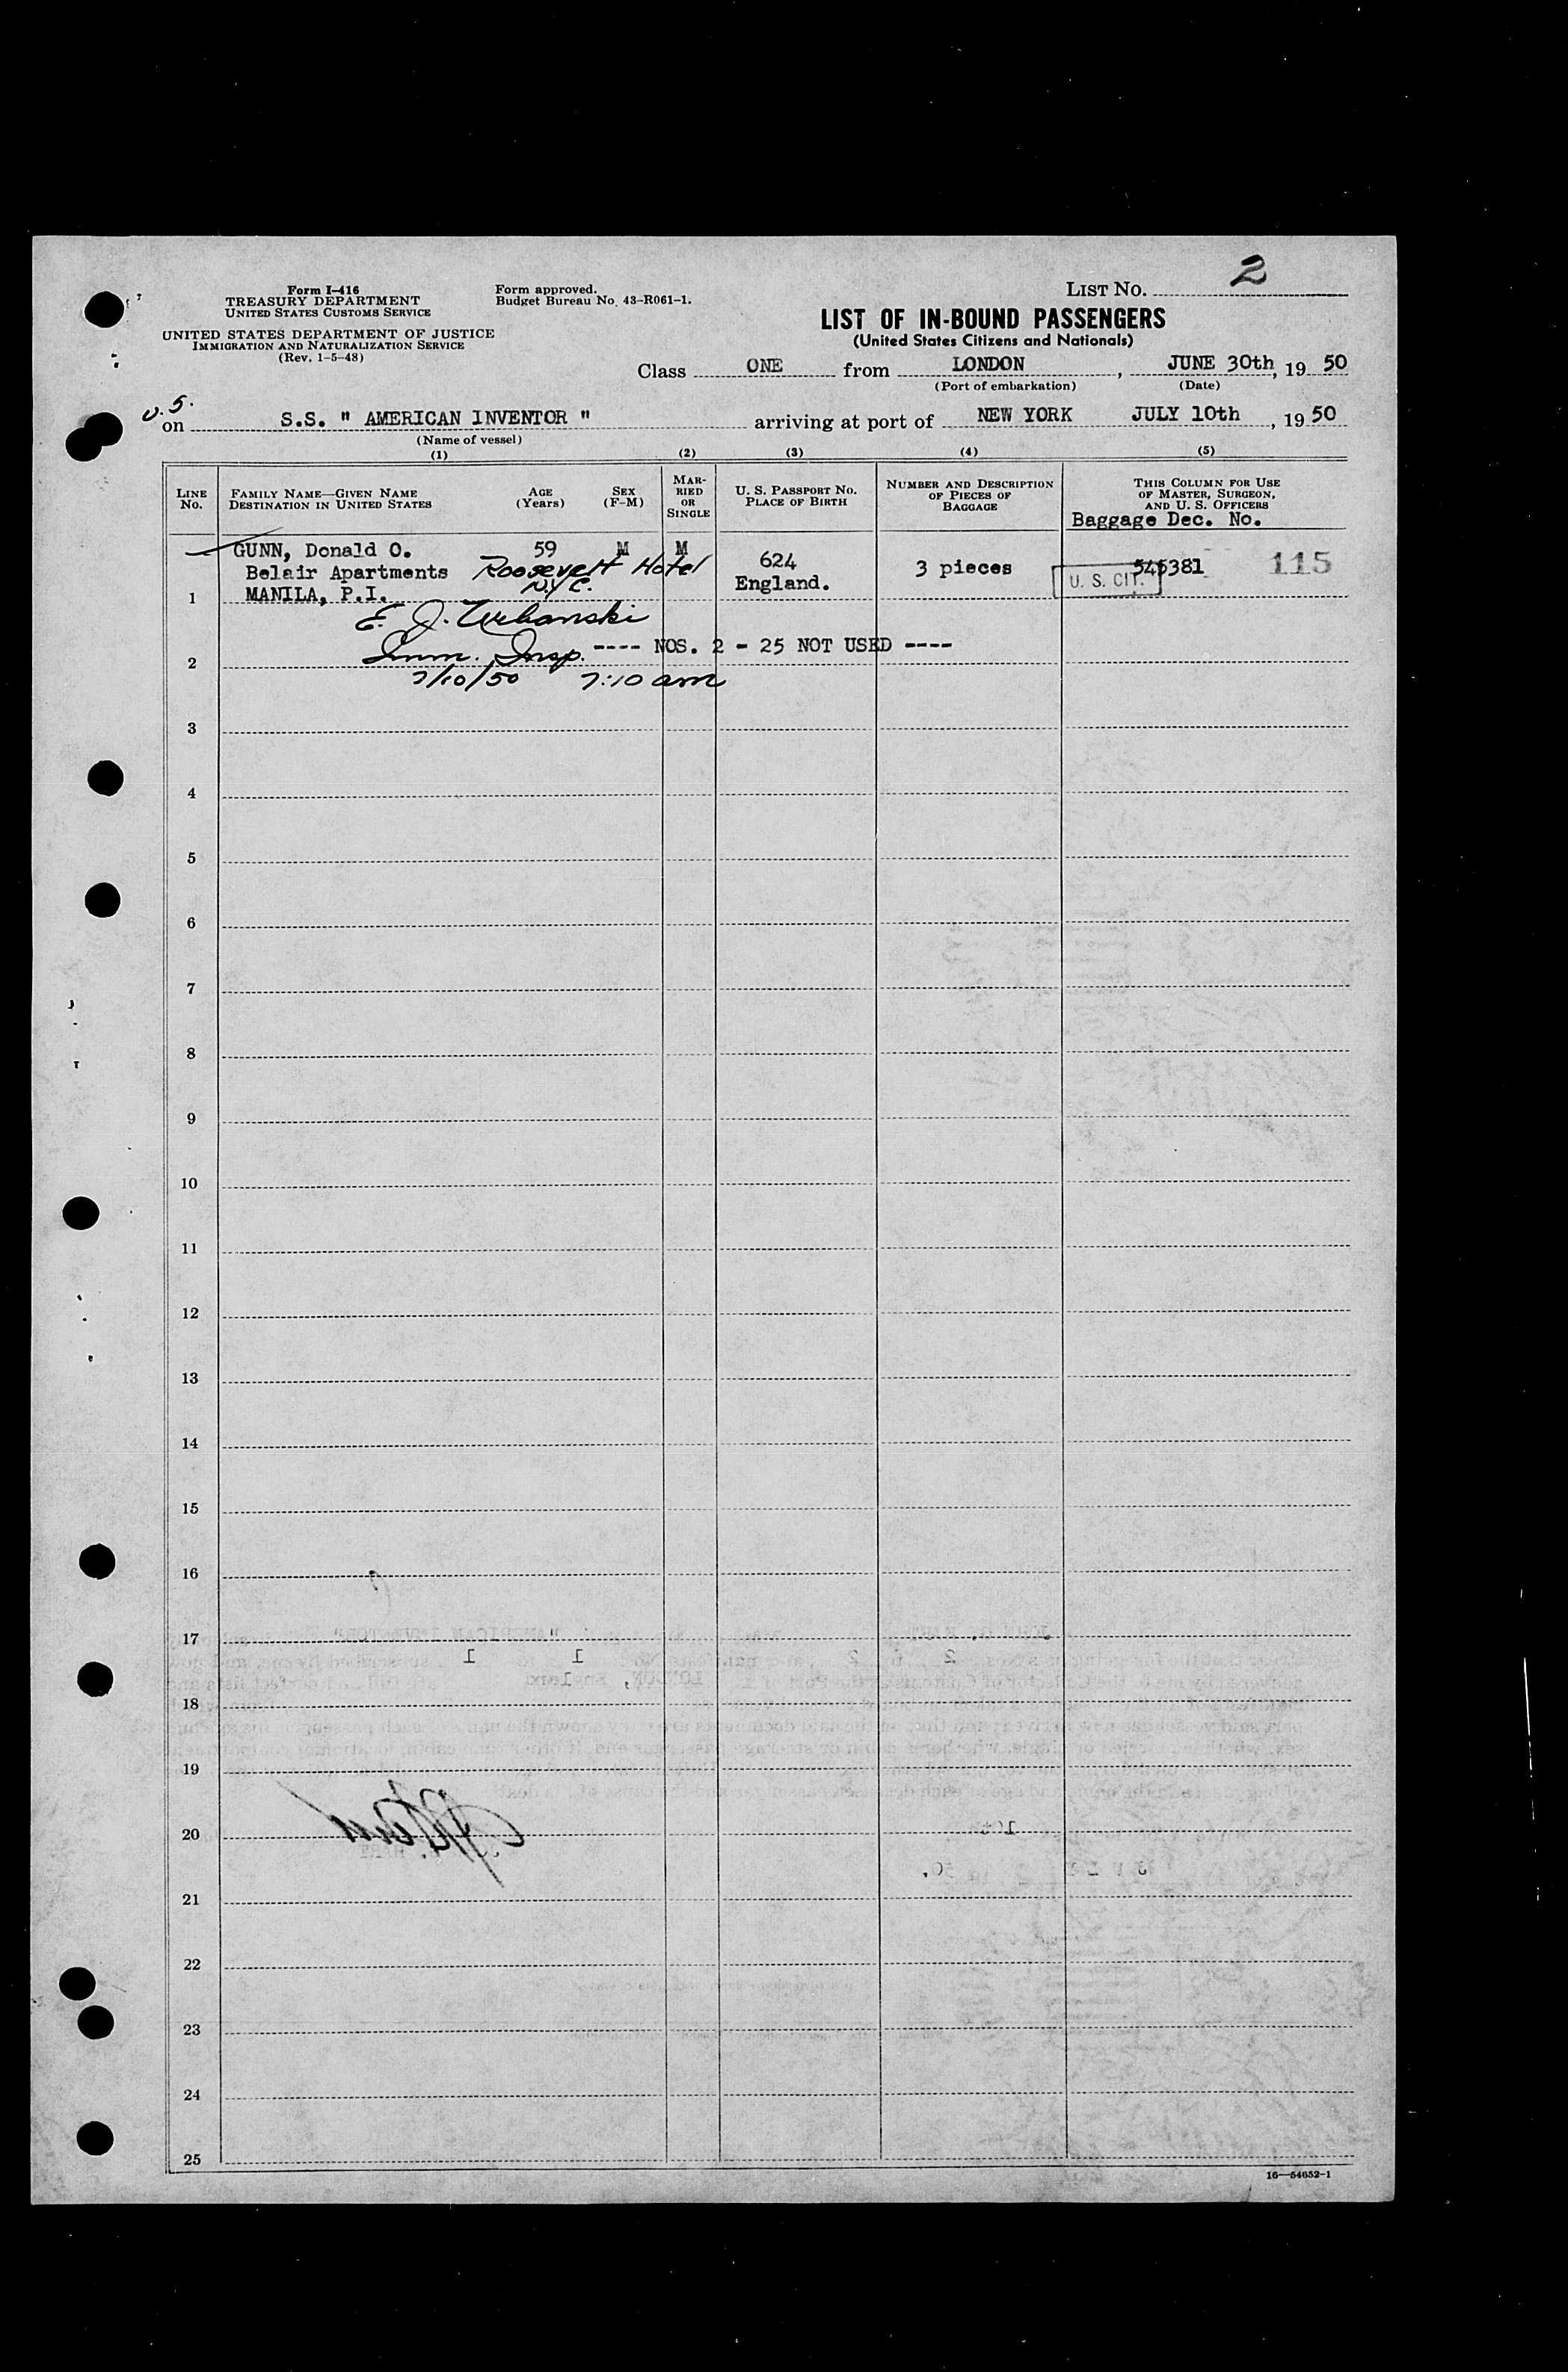 2
LIST NO.
Form I-416
TREASURY DEPARTMENT
UNITED STATES CUSTOMS SERVICE
UNITED STATES DEPARTMENT OF JUSTICE
IMMIGRATION AND NATURALIZATION SERVICE
(Rev. 1-5-48)
Form approved.
Budget Bureau No. 43-R061-1.
LIST OF IN-BOUND PASSENGERS
(United States Citizens and Nationals)
Class ONE from LONDON, JUNE 30th, 19 50
(Port of embarkation) (Date)
U.S.
on S.S. " AMERICAN INVENTOR " arriving at port of NEW YORK JULY 10th, 19 50
(Name of vessel)
(1) (2) (3) (4) (5)
LINE No.
FAMILY NAME—GIVEN NAME
DESTINATION IN UNITED STATES
AGE (Years)
SEX (F-M)
MARRIED OR SINGLE
U. S. PASSPORT NO.
PLACE OF BIRTH
NUMBER AND DESCRIPTION OF PIECES OF BAGGAGE
THIS COLUMN FOR USE OF MASTER, SURGEON, AND U. S. OFFICERS
Baggage Dec. No.
GUNN, Donald O. 59 M M 624 3 pieces 115
Belair Apartments Roosevelt Hotel England. U. S. CIT.
1 MANILA, P.I. N.Y.C.
E. J. Urbanski
2 Imm. Insp. ---- NOS. 2 - 25 NOT USED ----
7/10/50 7:10 am
3
4
5
6
7
8
9
10
11
12
13
14
15
16
17
18
19
20
21
22
23
24
25
16—54652-1